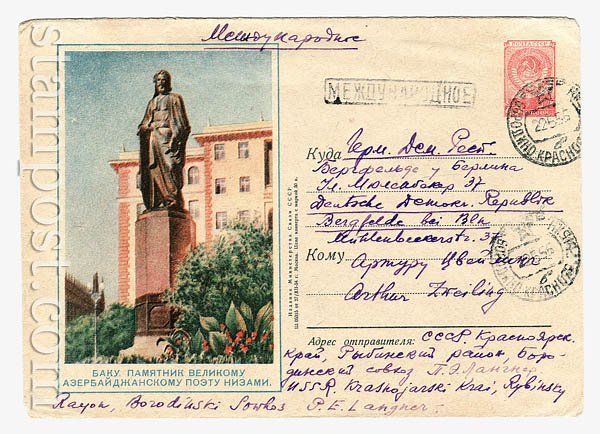 Международное
ПОЧТА СССР
МЕЖДУНАРОДНОЕ
Куда Герм. Дем. Респ.
Бергфельде у Берлина
Ул. Мюленбекер 37
Deutsche Demokr. Republik
Bergfelde bei Bln
Mühlenbeckerstr. 37
Кому Артуру Цвейлинг
Arthur Zweiling
Адрес отправителя: СССР. Красноярск.
край, Рыбинский район, Боро-
динский совхоз П.Э. Лангнер
USSR. Krasnojarski Krai, Rybinsky
Rayon, Borodinski Sowhos P.E. Langner.
БАКУ. ПАМЯТНИК ВЕЛИКОМУ
АЗЕРБАЙДЖАНСКОМУ ПОЭТУ НИЗАМИ.
Издание Министерства Связи СССР
stampost.com